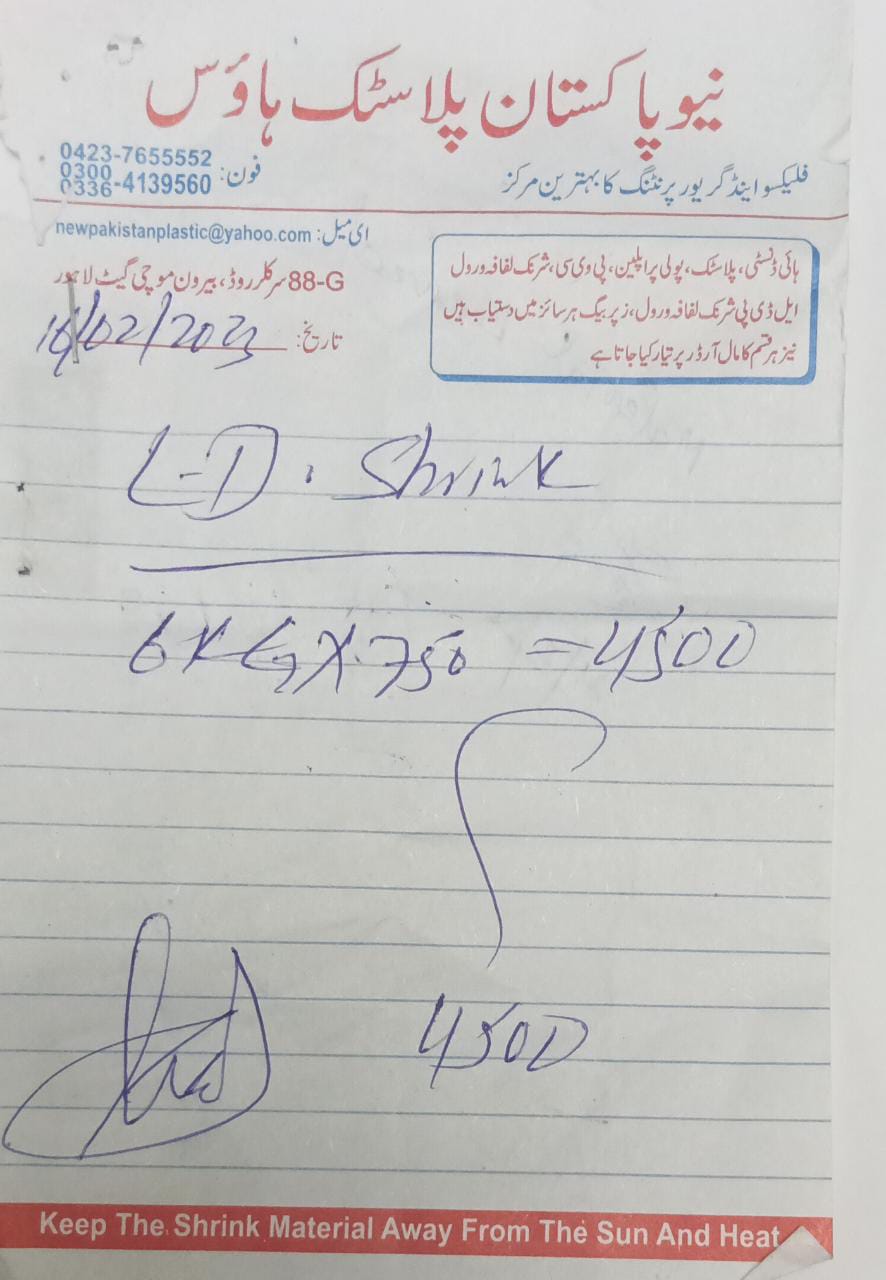 نیو پاکستان پلاسٹک ہاؤس
فلیکسو اینڈ گریور پرنٹنگ کا بہترین مرکز
فون: 0423-7655552
0300
0336-4139560
ای میل: newpakistanplastic@yahoo.com
88-G سرکلر روڈ، بیرون موچی گیٹ لاہور
تاریخ: 16/02/2023
ہائی ڈنسٹی، پلاسٹک، پولی پراپلین، پی وی سی، شرنک لفافہ ورول
ایل ڈی پی شرنک لفافہ ورول، زپر بیگ ہر سائز میں دستیاب ہیں
نیز ہر قسم کا مال آرڈر پر تیار کیا جاتا ہے
L-D. Shrink
6KG X 750 = 4500
4500
Keep The Shrink Material Away From The Sun And Heat